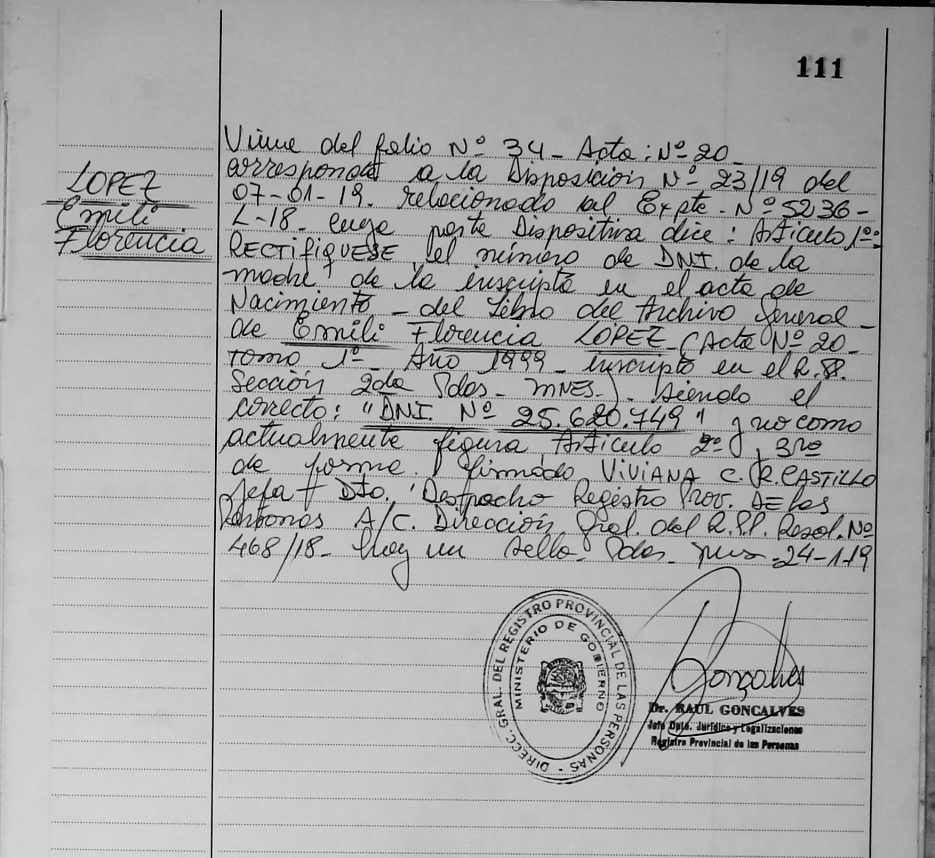 111
LOPEZ
Emili
Florencia
Viene del folio Nº 34 - Acta: Nº 20 -
correspondₑ a la Disposición Nº 23/19 del
07-01-19. relacionado al Expte. Nº 5236 -
L-18. cuya parte Dispositiva dice: Articulo 1º:
RECTIFIQUESE el número de DNI. de la
madre de la inscripta en el acta de
Nacimiento - del Libro del Archivo General -
de Emili Florencia LOPEZ (Acta Nº 20 -
Tomo 1º - Año 1999 - inscripto en el R.P.
Sección 2da Pdas - MNES.) siendo el
correcto: "DNI Nº 25.620.749" y no como
actualmente figura Articulo 2º y 3ro
de forma. firmado VIVIANA C. R. CASTILLO
Jefa Dto. Despacho Registro Prov. DE las
Personas A/C. Dirección Gral. del R.P.P. Resol. Nº
468/18 - Hay un sello - Pdas - mnes - 24-1-19
DIRECC. GRAL. DEL REGISTRO PROVINCIAL DE LAS PERSONAS -
MINISTERIO DE GOBIERNO
Gonçalves
Dr. RAUL GONCALVES
Jefe Dpto. Jurídico y Legalizaciones
Registro Provincial de las Personas